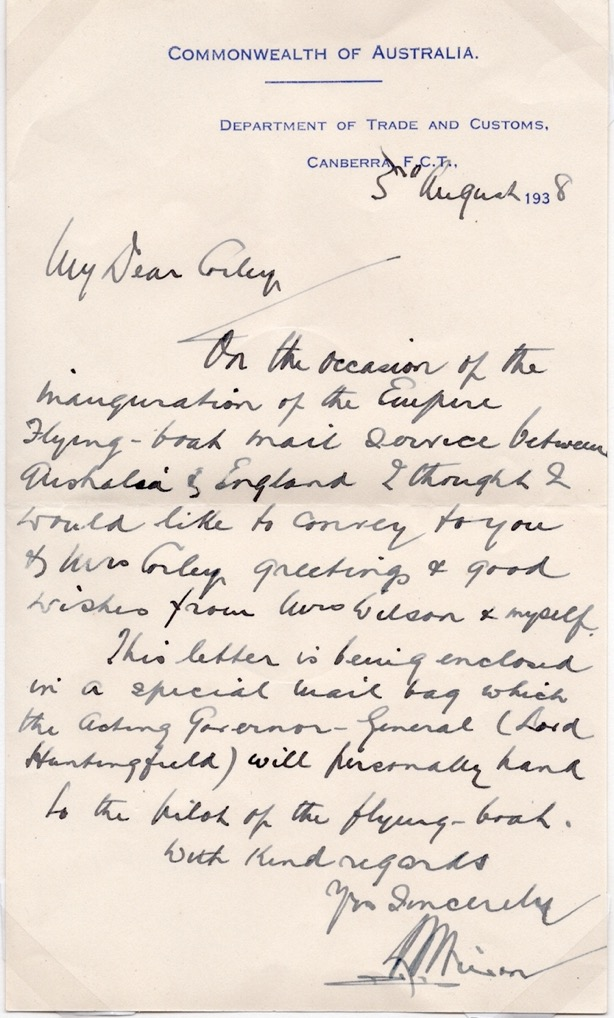 COMMONWEALTH OF AUSTRALIA.
DEPARTMENT OF TRADE AND CUSTOMS,
CANBERRA, F.C.T.,
3rd August 1938
My Dear Corley
On the occasion of the
inauguration of the Empire
Flying-boat mail service between
Australia & England I thought I
would like to convey to you
& Mrs Corley greetings & good
wishes from Mrs Wilson & myself.
This letter is being enclosed
in a special mail bag which
the Acting Governor-General (Lord
Huntingfield) will personally hand
to the pilot of the flying-boat.
With kind regards
Yrs Sincerely